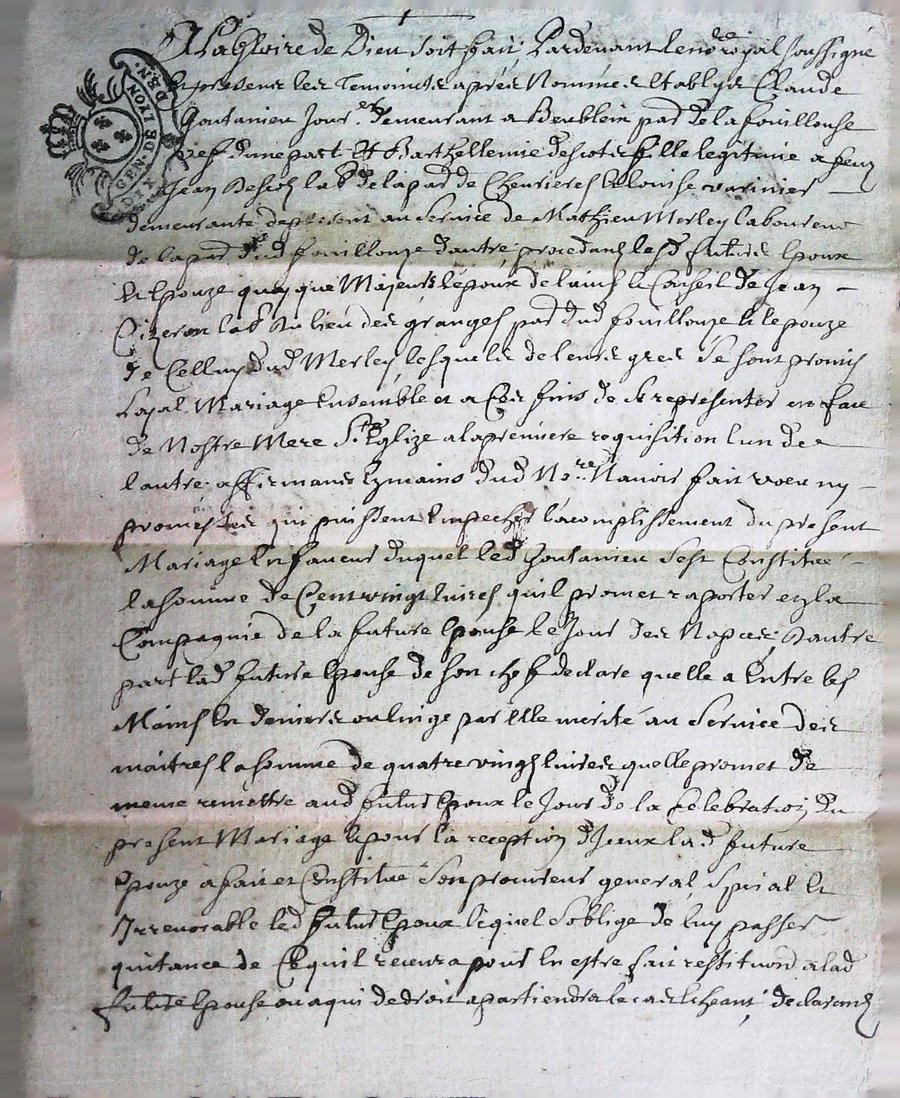 A La gloire de Dieu soit fait Pardevant le no.re royal soussigné
Et presens les Temoins aprés Nommés Etablys Claude
GEN. DE LYON
DIX DEN.
Goutanieu Jour.er demeurant a Beublein par de la fouillouse
d'une part Et Barthellemie descots fille legitime a feu
Jean Descots lab.r de la par de Chevrieres Et Louise varinier
demeurante depresent au service de Mathieu Merley laboureur
de la par dud fouillouze d'autre, procedans lesd futurs Epoux
Et Epouze quoy que Majeurs lépoux de lavis Et Conseil de Jean
Cizeron lab.r du lieu des granges par dud fouillouze Et lepouze
de Celluy dud Merley lesquels de leurs gres se sont promis
Loyal Mariage Ensemble et a Ces fins de se representer en face
de Nostre Mere S.te Eglize a la premiere requisition l'un de
lautre affirmans Es mains dud No.re N'avoir fait voeu ny
promesses qui puissent Empecher l'acomplissement du present
Mariage En faveur duquel led Goutanieu s'est Constitué
la somme de Cent vingt Livres quil promet raporter en la
Compagnie de la future Epouse le Jour des Nopces, d'autre
part lad future Epouse de son chef declare quelle a Entre les
Mains En deniers ou linge par Elle merité au service des
maitres la somme de quatre vingt livres quelle promet de
meme remettre aud futur Epoux le Jour de la Celebration du
present Mariage Et pour la reception d'Jceux lad future
Epouze a fait et Constitué son procureur general, special Et
Irrevocable led futur Epoux lequel s'oblige de luy passer
quitance de Ce quil recevra pour En estre fait restitution a lad
future Epouse ou a qui de droit apartiendra le cas Echeant, declarans